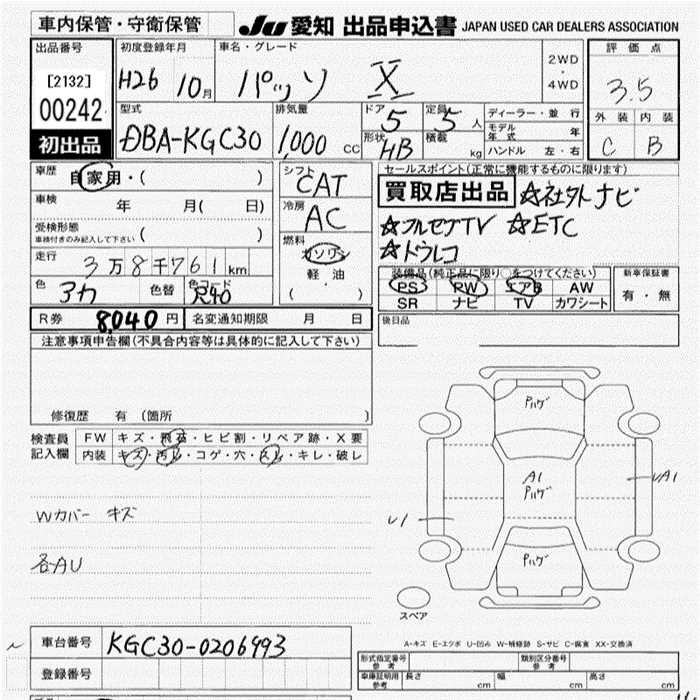 車内保管・守衛保管 JU 愛知 出品申込書 JAPAN USED CAR DEALERS ASSOCIATION
出品番号 初度登録年月 車名・グレード 2WD・4WD 評価点
[2132] H26 10月 パッソ X 3.5
00242 型式 排気量 ドア 定員 ディーラー・並行 外装 内装
初出品 DBA-KGC30 1,000 CC 5 5人 モデル年式 年 C B
形状 HB 積載 kg ハンドル 左・右
車歴 自家用・( ) シフト CAT セールスポイント(正常に機能するものに限ります)
車検 年 月( 日) 冷房 AC 買取店出品 ☆社外ナビ
受検形態 車検付きのみ記入して下さい ( ) ☆フルセグTV ☆ETC
燃料 ガソリン ☆ドラレコ
走行 3万8千761km 軽油 装備品(純正品に限り○をつけてください) 新車保証書
色 アカ 色替 色コード R40 ( ・ ) PS PW エアB AW 有・無
SR ナビ TV カワシート
R券 8,040円 名変通知期限 月 日 後日品
注意事項申告欄(不具合内容等は具体的に記入して下さい)
修復歴 有 (箇所 )
検査員記入欄 FW キズ・飛石・ヒビ割・リペア跡・X要
内装 キズ・汚レ・コゲ・穴・スレ・キレ・破レ
Pハゲ
A1
Pハゲ
UA1
U1
Wカバー キズ
各AU
Pハゲ
スペア
A-キズ E-エクボ U-凹み W-補修跡 S-サビ C-腐食 XX-交換済
車台番号 KGC30-0206993
型式指定番号 参考 類別区分番号 参考
登録番号 車庫証明用 参考 長さ cm 幅 cm 高さ cm